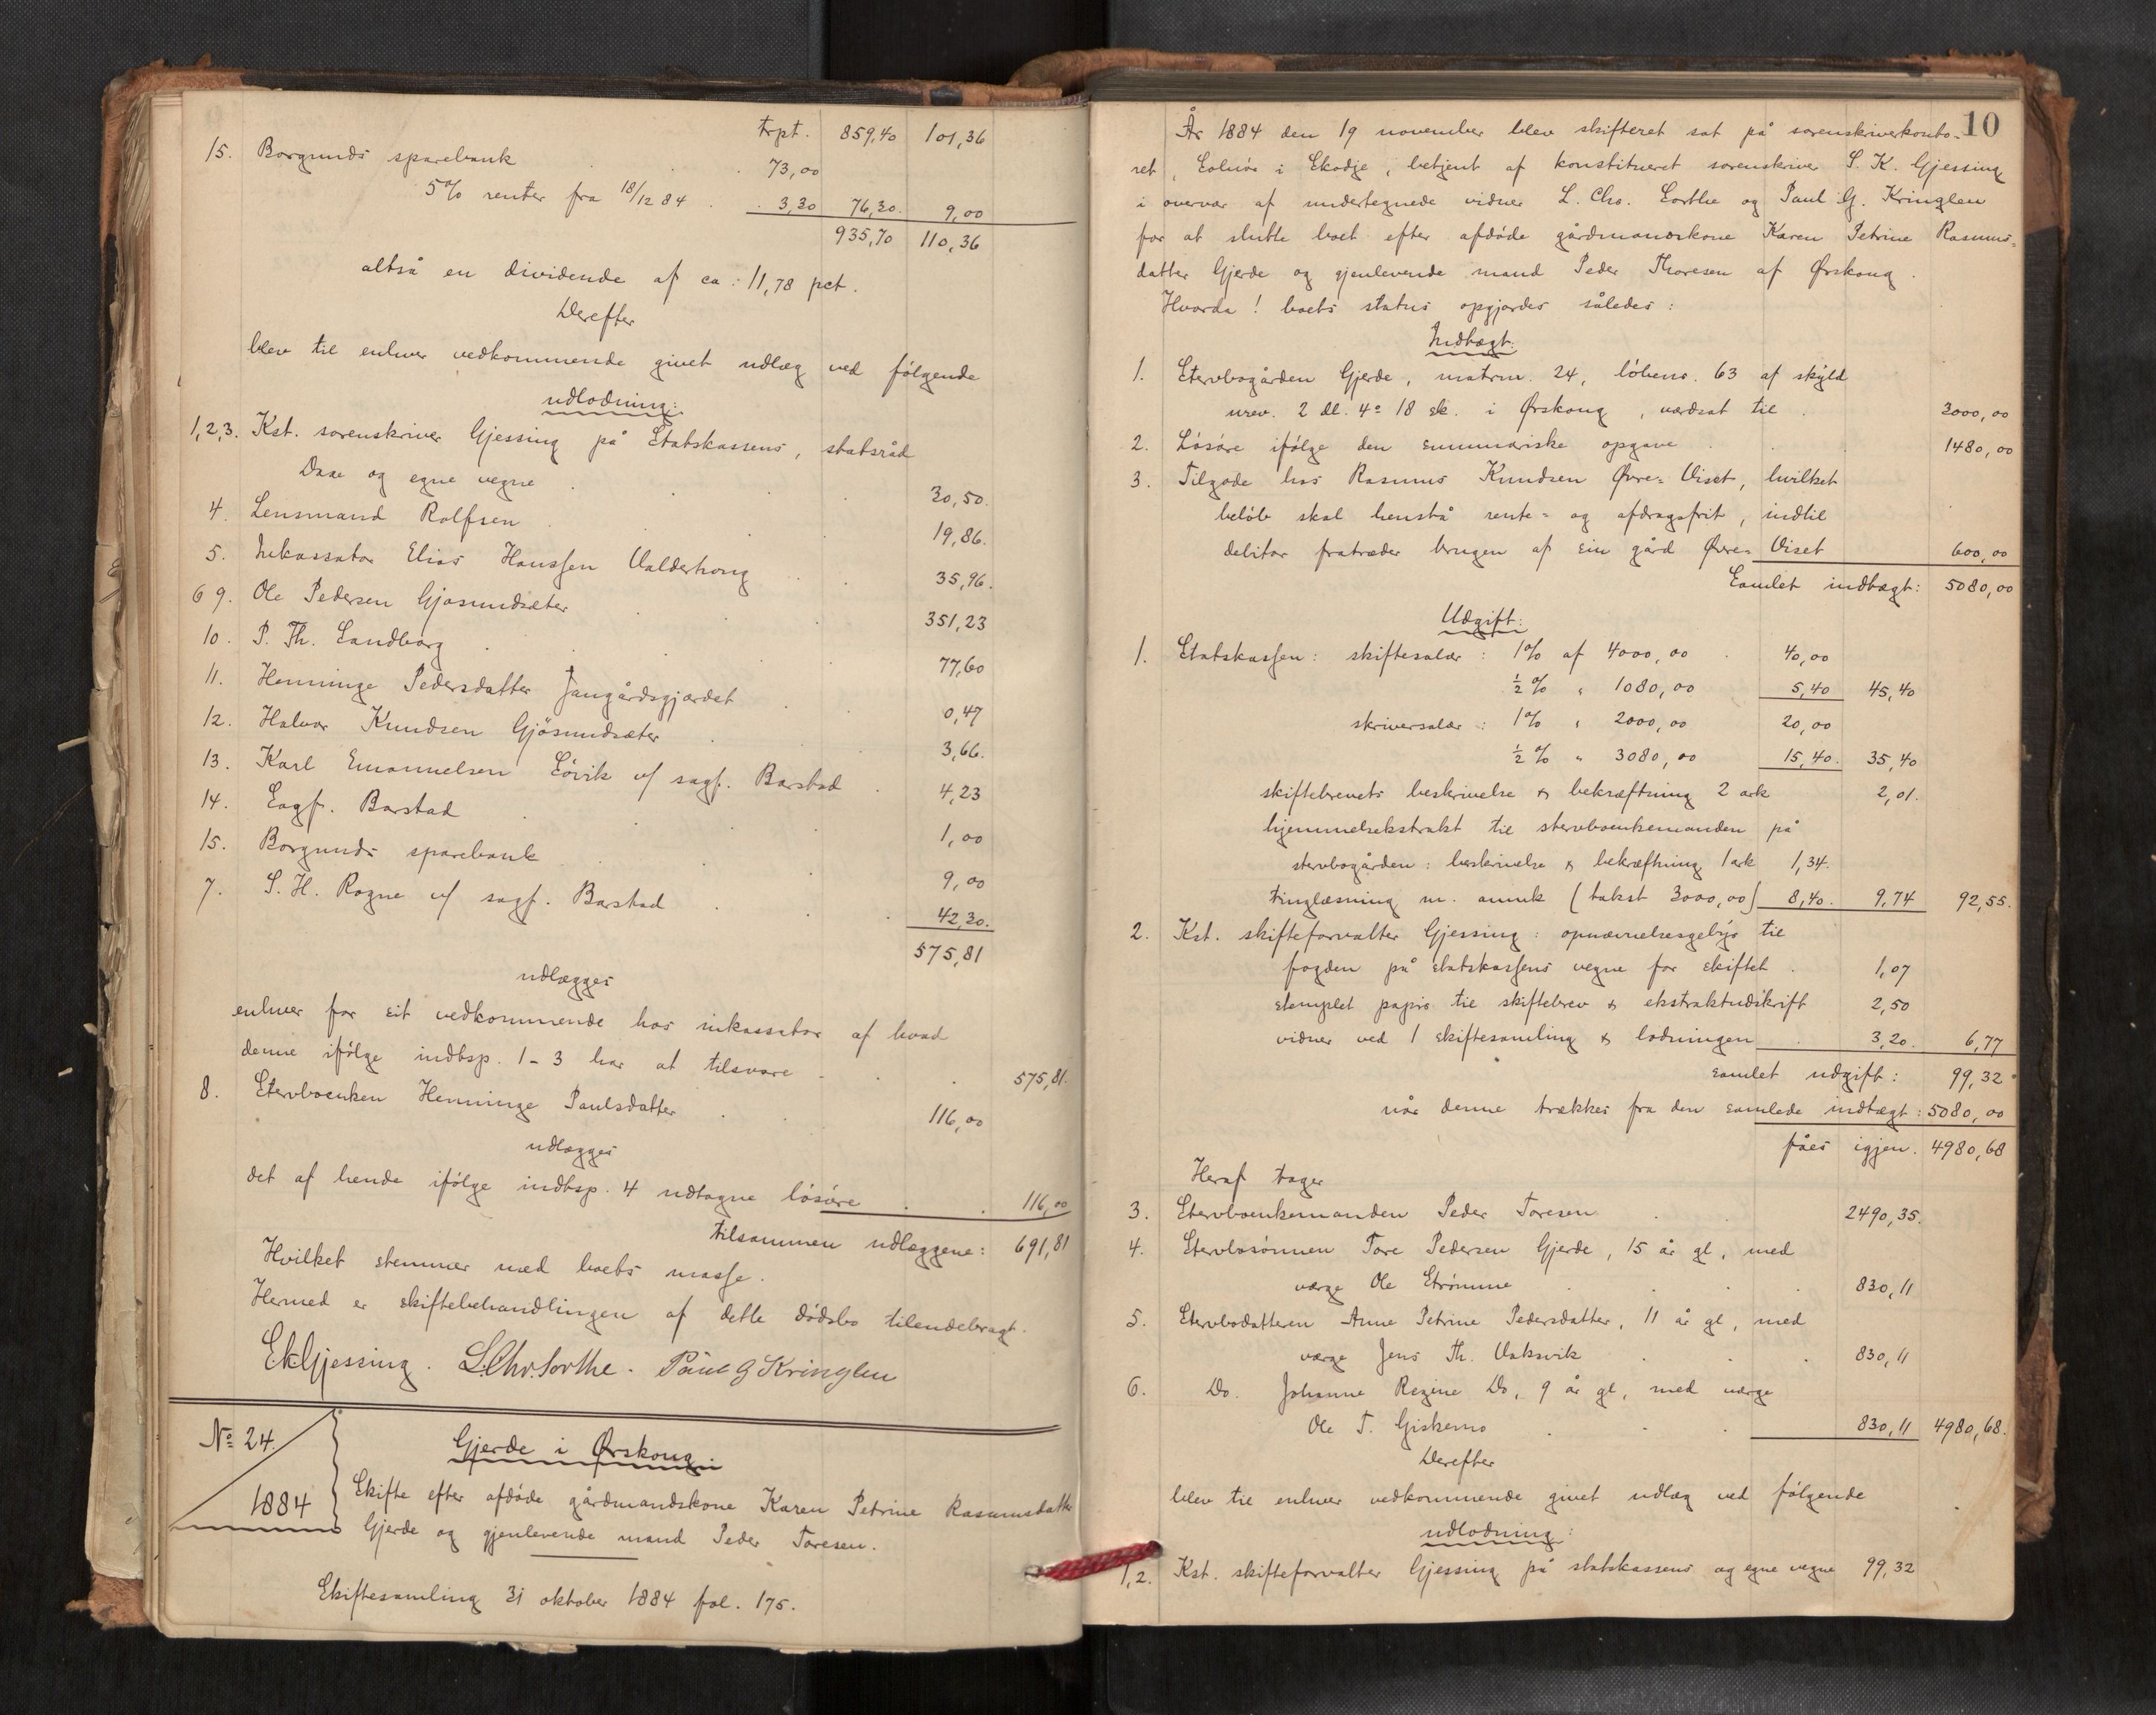 trpt. 859,40 101,36
15. Borgunds sparebank 73,00
5% renter fra 18/12 84 3,30 76,30. 9,00
935,70 110,36
altså en dividende af ca: 11,78 pct.
Derefter
blev til enhver vedkommende givet udlæg ved følgende
udlodning:
1,2,3. Kst. sorenskriver Gjessing på Statskassens, statsråd
Daae og egne vegne 30,50.
4. Lensmand Rolfsen 19,86.
5. Inkassator Elias Hanssen Valderhoug 35,96.
6 9. Ole Pedersen Gjøsundsæter 351,23
10. P. Th. Sandborg 77,60
11. Henninge Pedersdatter Jangårdsgjærdet 0,47
12. Halvor Knudsen Gjøsundsæter 3,66.
13. Karl Emanuelsen Søvik v/ sagf. Barstad 4,23
14. Sagf. Barstad 1,00
15. Borgunds sparebank 9,00
7. S. H. Rogne v/ sagf. Barstad 42,30.
575,81
udlægges
enhver for sit vedkommende hos inkassator af hvad
denne ifølge indtsp. 1-3 har at tilsvare 575,81.
8. Stervboenken Henninge Paulsdatter 116,00
udlægges
det af hende ifølge indtsp. 4 udtagne løsøre 116,00
tilsammen udlæggene: 691,81
Hvilket stemmer med boets masse.
Hermed er skiftebehandlingen af dette dødsbo tilendebragt.
SKGjessing. L.Chr.Sorthe. Paul G Kringlen
No 24 1884
Gjerde i Ørskoug.
Skifte efter afdøde gårdmandskone Karen Petrine Rasmusdatter
Gjerde og gjenlevende mand Peder Toresen.
Skiftesamling 31 oktober 1884 fol. 175.
10
År 1884 den 19 november blev skifteret sat på sorenskriverkonto-
ret, Solnør i Skodje, betjent af konstitueret sorenskriver S. K. Gjessing
i overvær af undertegnede vidner L. Chr. Sorthe og Paul G. Kringlen
for at slutte boet efter afdøde gårdmandskone Karen Petrine Rasmus-
datter Gjerde og gjenlevende mand Peder Thoresen af Ørskoug.
Hvorda! boets status opgjordes således:
Indtægt:
1. Stervbogården Gjerde, matrn. 24, løbeno. 63 af skyld
urev. 2 dl. 4 o 18 sk. i Ørskoug, værdsat til 3000,00
2. Løsøre ifølge den summariske opgave 1480,00
3. Tilgode hos Rasmus Knudsen Øvre-Viset, hvilket
beløb skal henstå rente- og afdragsfrit, indtil
debitor fratræder brugen af sin gård Øvre-Viset 600,00
Samlet indtægt: 5080,00
Udgift:
1. Statskassen: skiftesalær: 1% af 4000,00 40,00
½% " 1080,00 5,40 45,40
skriversalær: 1% " 2000,00 20,00
½% " 3080,00 15,40. 35,40
skiftebrevets beskrivelse & bekræftning 2 ark 2,01.
hjemmelsekstrakt til stervboenkemanden på
stervbogården: beskrivelse & bekræftning 1 ark 1,34.
tinglæsning m. anmk (takst 3000,00) 8,40. 9,74 92,55.
2. Kst. skifteforvalter Gjessing: opnævnelsesgebyr til
fogden på statskassens vegne for skiftet 1,07
stemplet papir til skiftebrev & ekstraktudskrift 2,50
vidner ved 1 skiftesamling & lodningen 3,20. 6,77
samlet udgift: 99,32
når denne trækkes fra den samlede indtægt: 5080,00
fåes igjen. 4980,68
Heraf tager
3. Stervboenkemanden Peder Toresen 2490,35.
4. Stervbosønnen Tore Pedersen Gjerde, 15 år gl, med
værge Ole Strømme 830,11
5. Stervbodatteren Anne Petrine Pedersdatter, 11 år gl, med
værge Jens Th. Vaksvik 830,11
6. Do. Johanne Regine Do, 9 år gl, med værge
Ole T. Giskemo 830,11 4980,68.
Derefter
blev til enhver vedkommende givet udlæg ved følgende
udlodning:
1,2. Kst. skifteforvalter Gjessing på statskassens og egne vegne 99,32